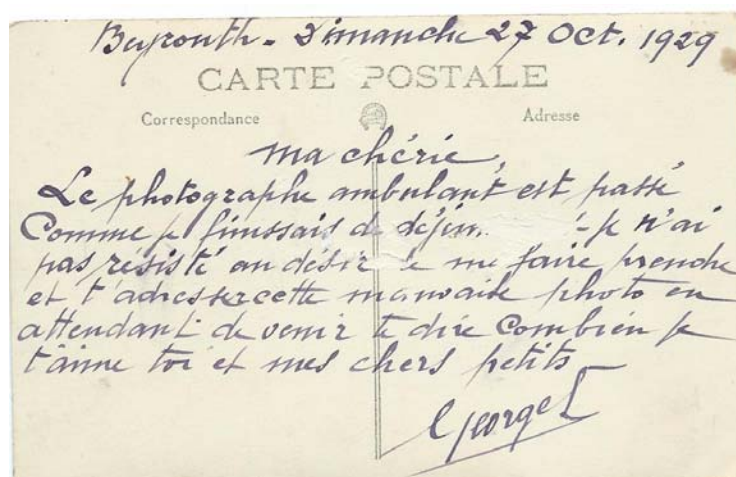 Beyrouth - Dimanche 27 Oct. 1929
CARTE POSTALE
Correspondance
Adresse
Ma chérie,
Le photographe ambulant est passé
Comme je finissais de - Je n'ai
pas résisté au désir de me faire prendre
et t'adresser cette mauvaise photo en
attendant de venir te dire Combien je
t'aime toi et mes chers petits
Georges